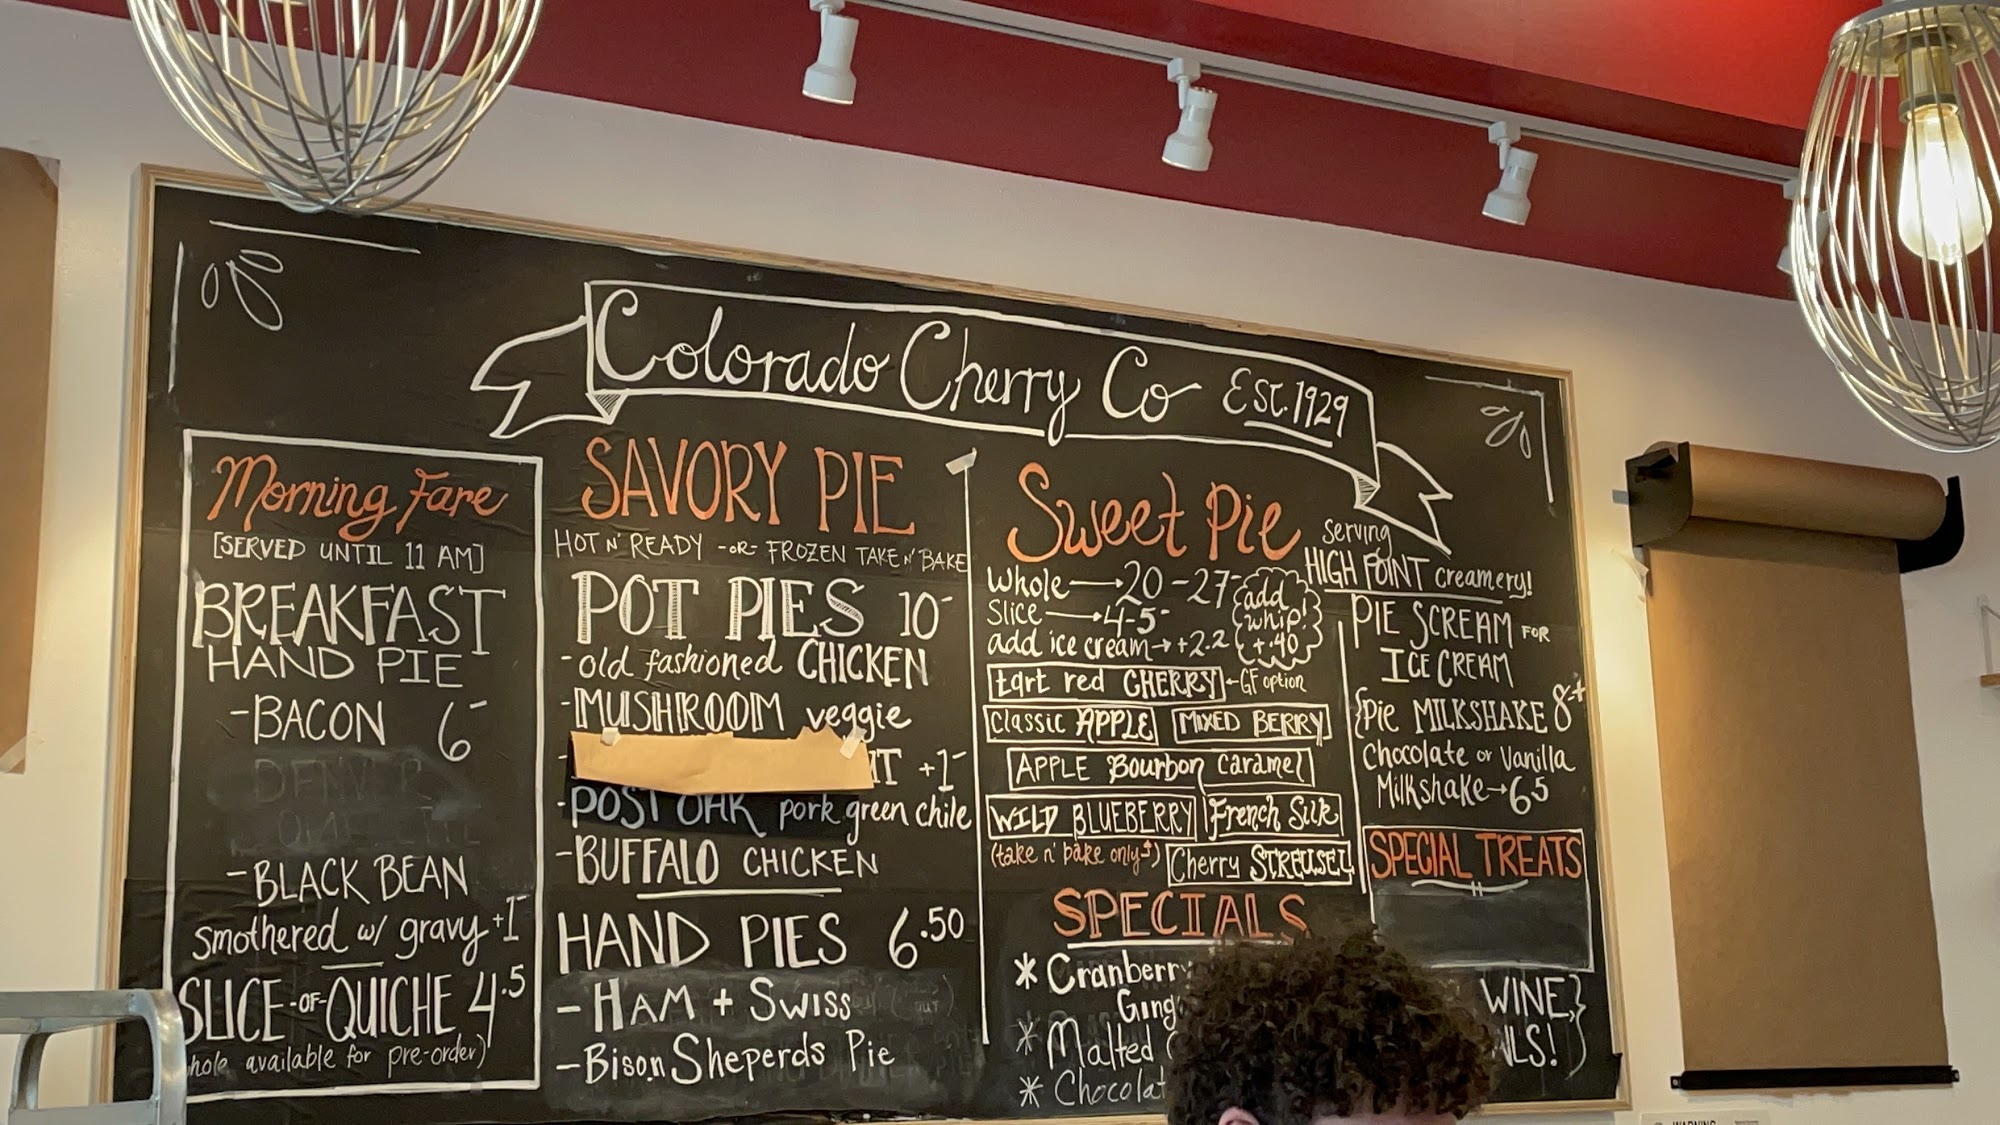 Colorado Cherry Co Est. 1929
Morning Fare
[SERVED UNTIL 11 AM]
BREAKFAST
HAND PIE
-BACON 6-
DENVER
-BLACK BEAN
smothered w/ gravy +1-
SLICE-OF-QUICHE 4.5
hole available for pre-order)
SAVORY PIE
HOT N' READY -OR- FROZEN TAKE N' BAKE
POT PIES 10-
-old fashioned CHICKEN
-MUSHROOM veggie
+1-
-POST OAK pork green chile
-BUFFALO CHICKEN
HAND PIES 6.50
-HAM + SWISS
-Bison Sheperds Pie
Sweet Pie
Whole→20-27-
Slice→4-5-
add ice cream→+2.2
add
whip!
+.40
tart red CHERRY ←GF option
Classic APPLE
MIXED BERRY
APPLE Bourbon caramel
WILD BLUEBERRY
French Silk
(take n' bake only↑)
Cherry STREUSEL
SPECIALS
* Cranberry
Ging
* Malted
* Chocolat
Serving
HIGH POINT creamery!
PIE SCREAM FOR
ICE CREAM
{Pie MILKSHAKE 8-+
Chocolate or Vanilla
Milkshake→65
SPECIAL TREATS
WINE,}
LS!
WARNING